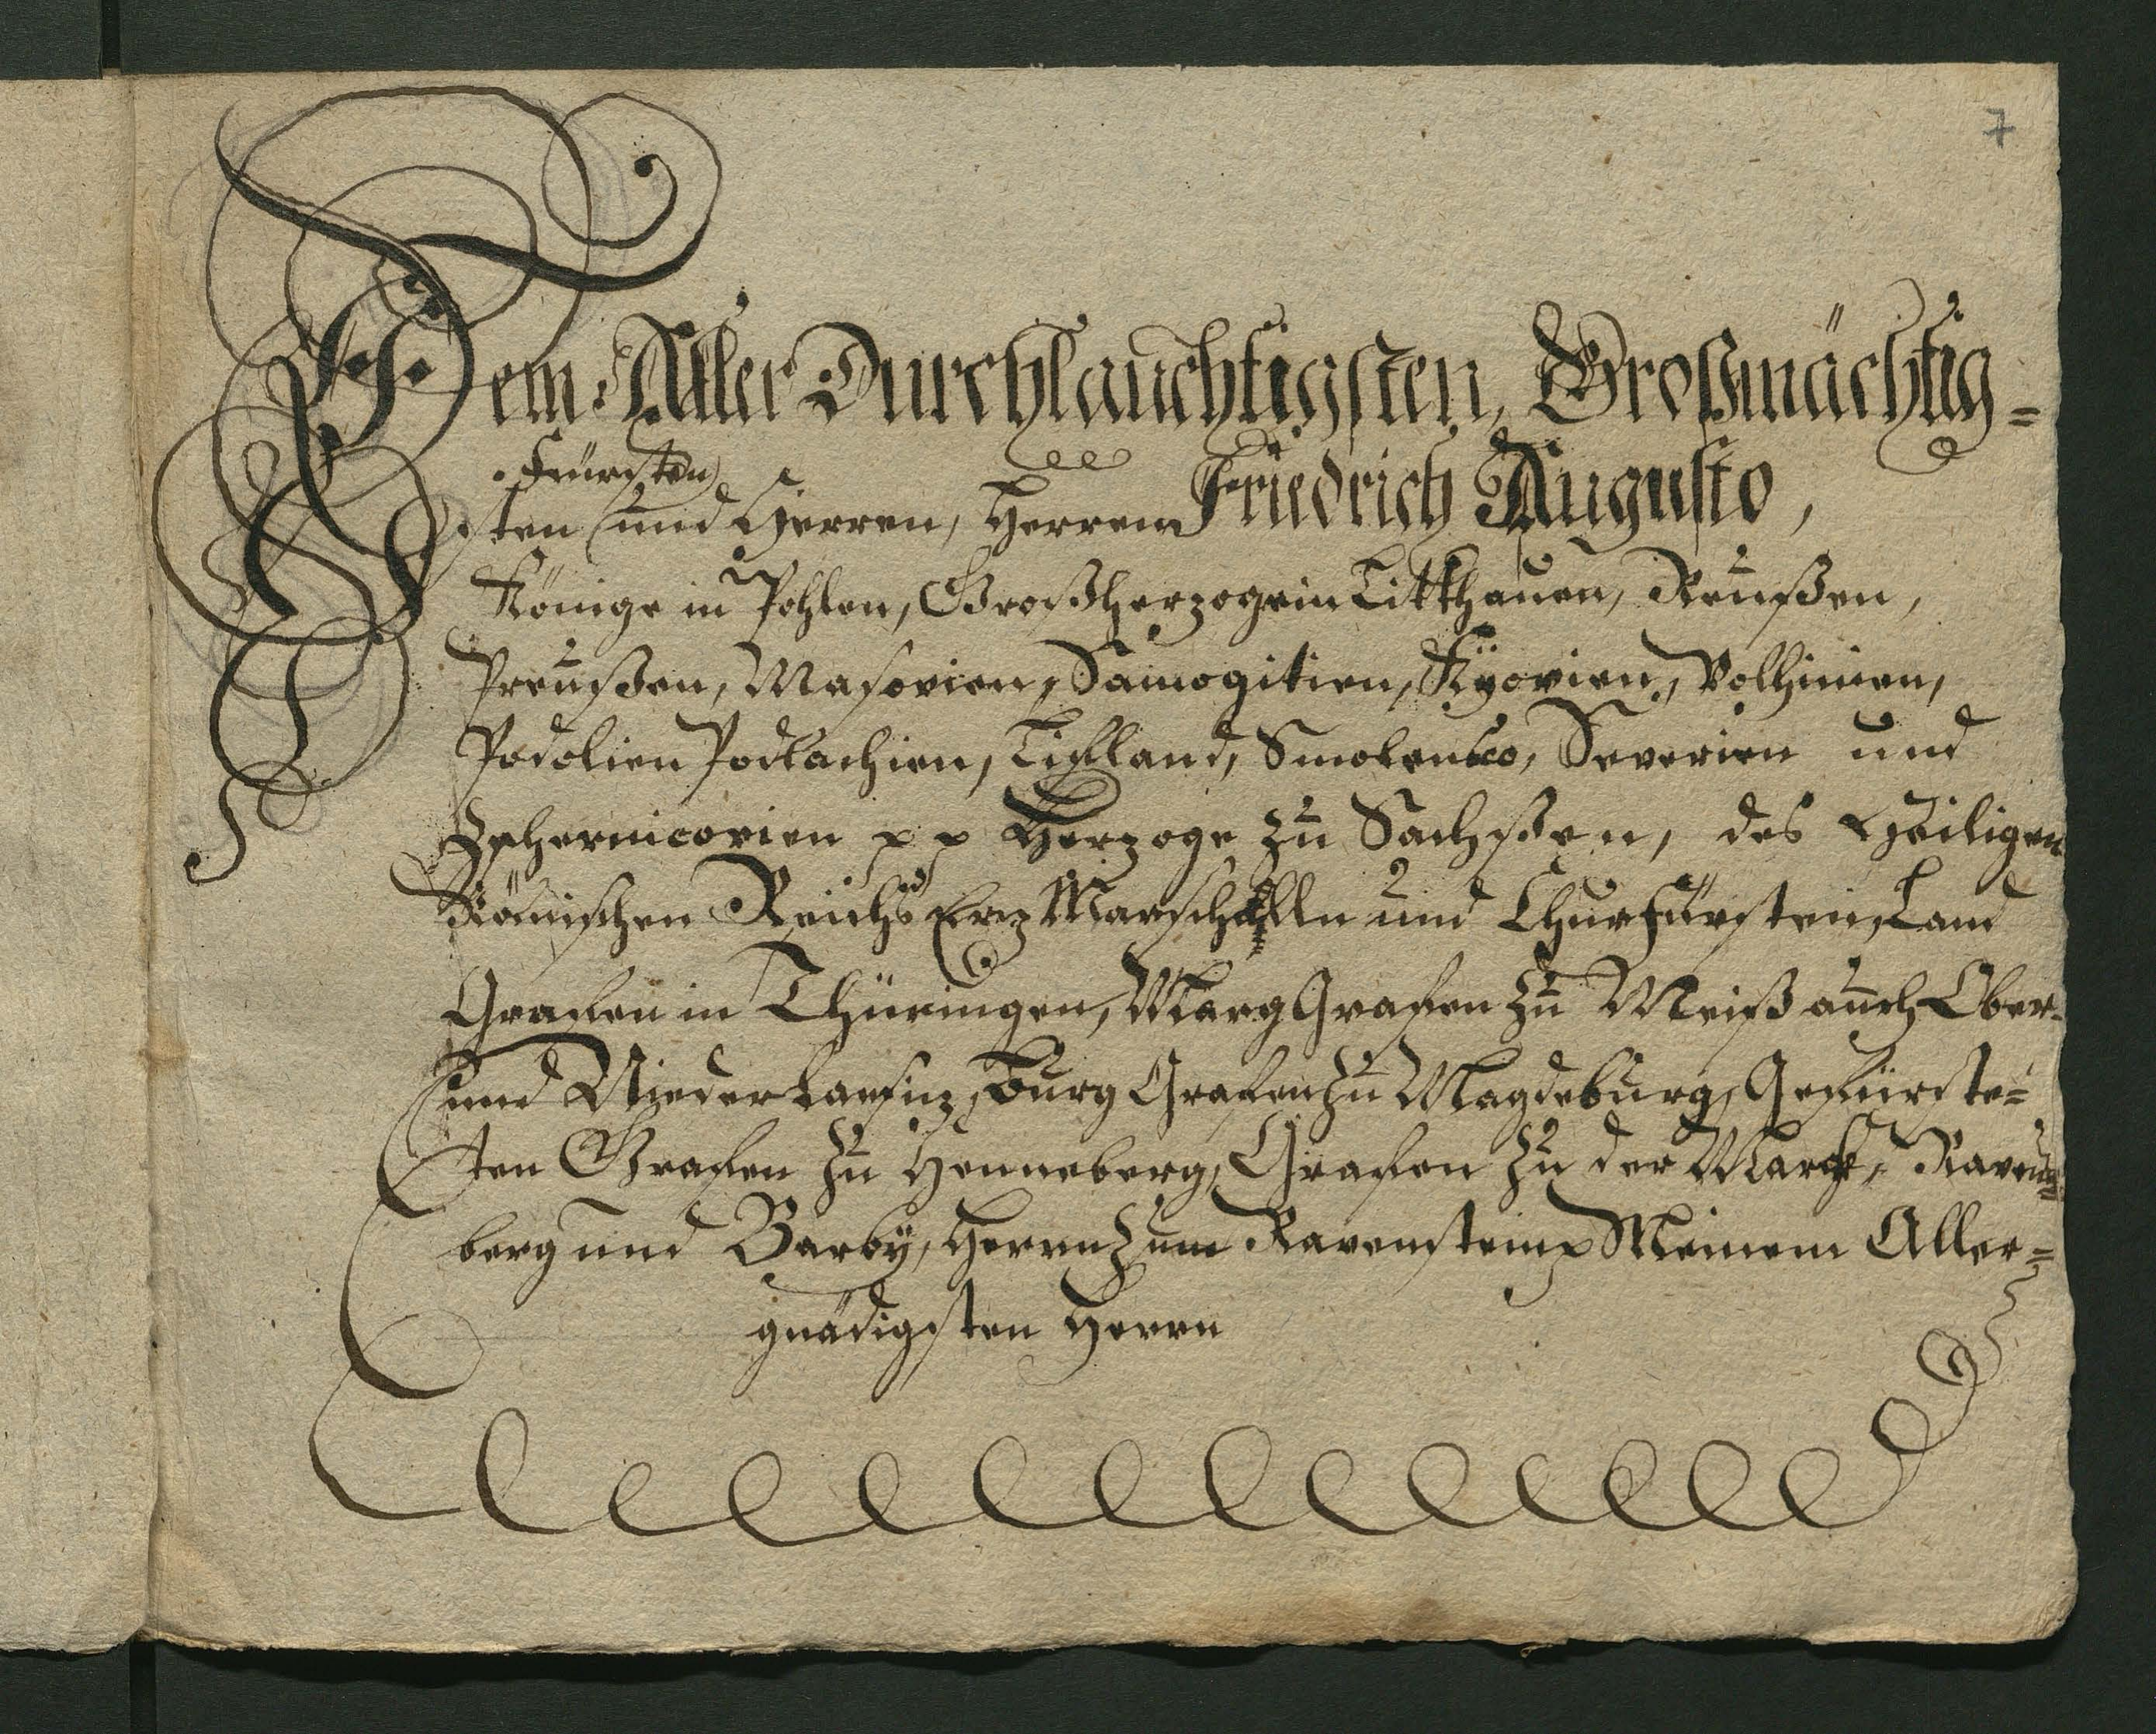 7
Dem Aller Durchlauchtigsten, Großmächtig=
Fürsten
sten und Herren, Herren Friedrich Augusto,
Könige in Pohlen, Großherzoge in Litthauen, Reußen,
Preußen, Masovien, Samogitien, Kyovien, Volhinien,
Podolien Podlachien, Liefland, Smolensco, Severien und
Zschernicovien p p Herzoge zu Sachßen, des Heiligen
Römischen Reichs Erz Marschalln und Churfürsten, Land
Grafen in Thüringen, Marg Grafen zu Meiß auch Ober-
und Nieder Lausiz, Burg Grafen zu Magdeburg, Gefürste=
ten Grafen zu Henneberg, Grafen zu der Marck, Ravens=
berg und Barbÿ, Herrn zum Ravenstein p Meinem Aller=
gnädigsten Herrn